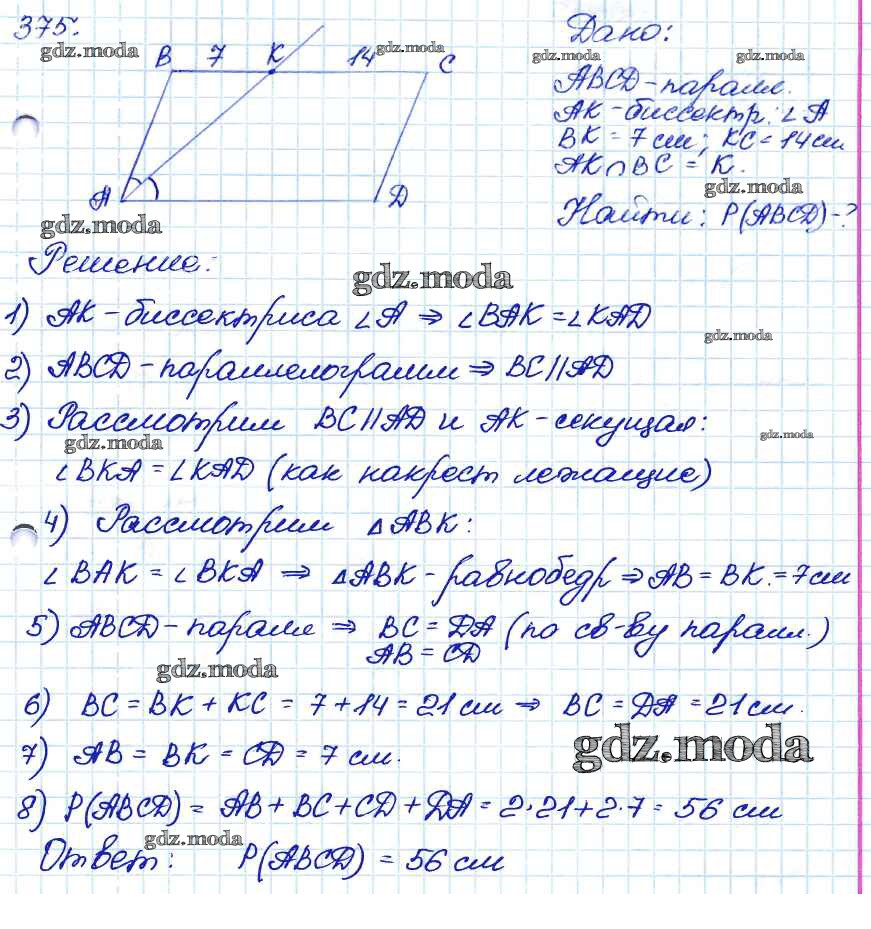 375.
gdz.moda
B 7 K 14 C
gdz.moda
A D
gdz.moda
Дано:
gdz.moda gdz.moda
ABCD - паралл.
AK - биссектр. ∠A
BK = 7 см; KC = 14 см
AK ∩ BC = K.
gdz.moda
Найти: P(ABCD) - ?
Решение:
gdz.moda
1) AK - биссектриса ∠A ⇒ ∠BAK = ∠KAD
gdz.moda
2) ABCD - параллелограмм ⇒ BC || AD
3) Рассмотрим BC || AD и AK - секущая:
gdz.moda gdz.moda
∠BKA = ∠KAD (как накрест лежащие)
4) Рассмотрим △ABK:
∠BAK = ∠BKA ⇒ △ABK - равнобедр ⇒ AB = BK = 7 см
5) ABCD - паралл ⇒ BC = DA (по св-ву паралл.)
AB = CD
gdz.moda
6) BC = BK + KC = 7 + 14 = 21 см ⇒ BC = DA = 21 см.
gdz.moda
7) AB = BK = CD = 7 см.
8) P(ABCD) = AB + BC + CD + DA = 2·21 + 2·7 = 56 см
gdz.moda
Ответ: P(ABCD) = 56 см